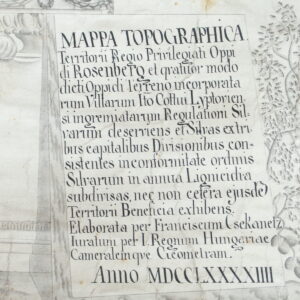 MAPPA TOPOGRAPHICA.
Territorii Regio Privilegiati Oppi
di Rosenberg et quatuor modo
dicti Oppidi Terreno incorporata
rum Villarum Ito Cottui Lyptovien
si ingremiatarum Regulationi Sil-
varum deserviens et Silvas extri
bus capitalibus Divisionibus con-
sistentes in conformitate ordinis
Silvarum in annua Lignicidia
subdivisas, nec non cetera ejusdem
Territorii Beneficia exhibens.
Elaborata per Franciscum Csekanetz
Iuratum per I. Regnum Hungariae
Cameralemque Geometram.
Anno MDCCLXXXXIIII